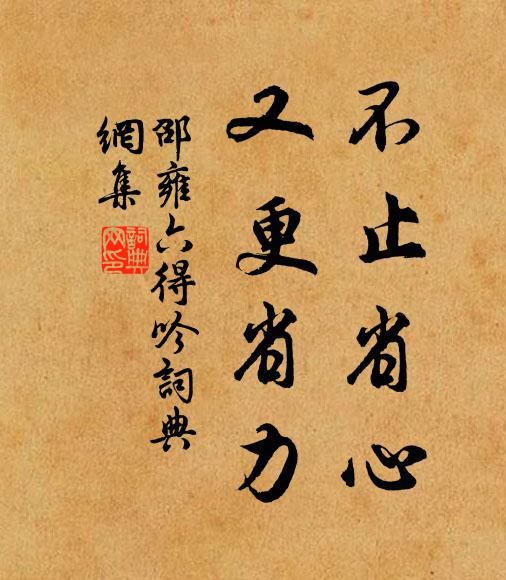 不止省心
又更省力
邵雍六得吟詞典
網集
詞典網印